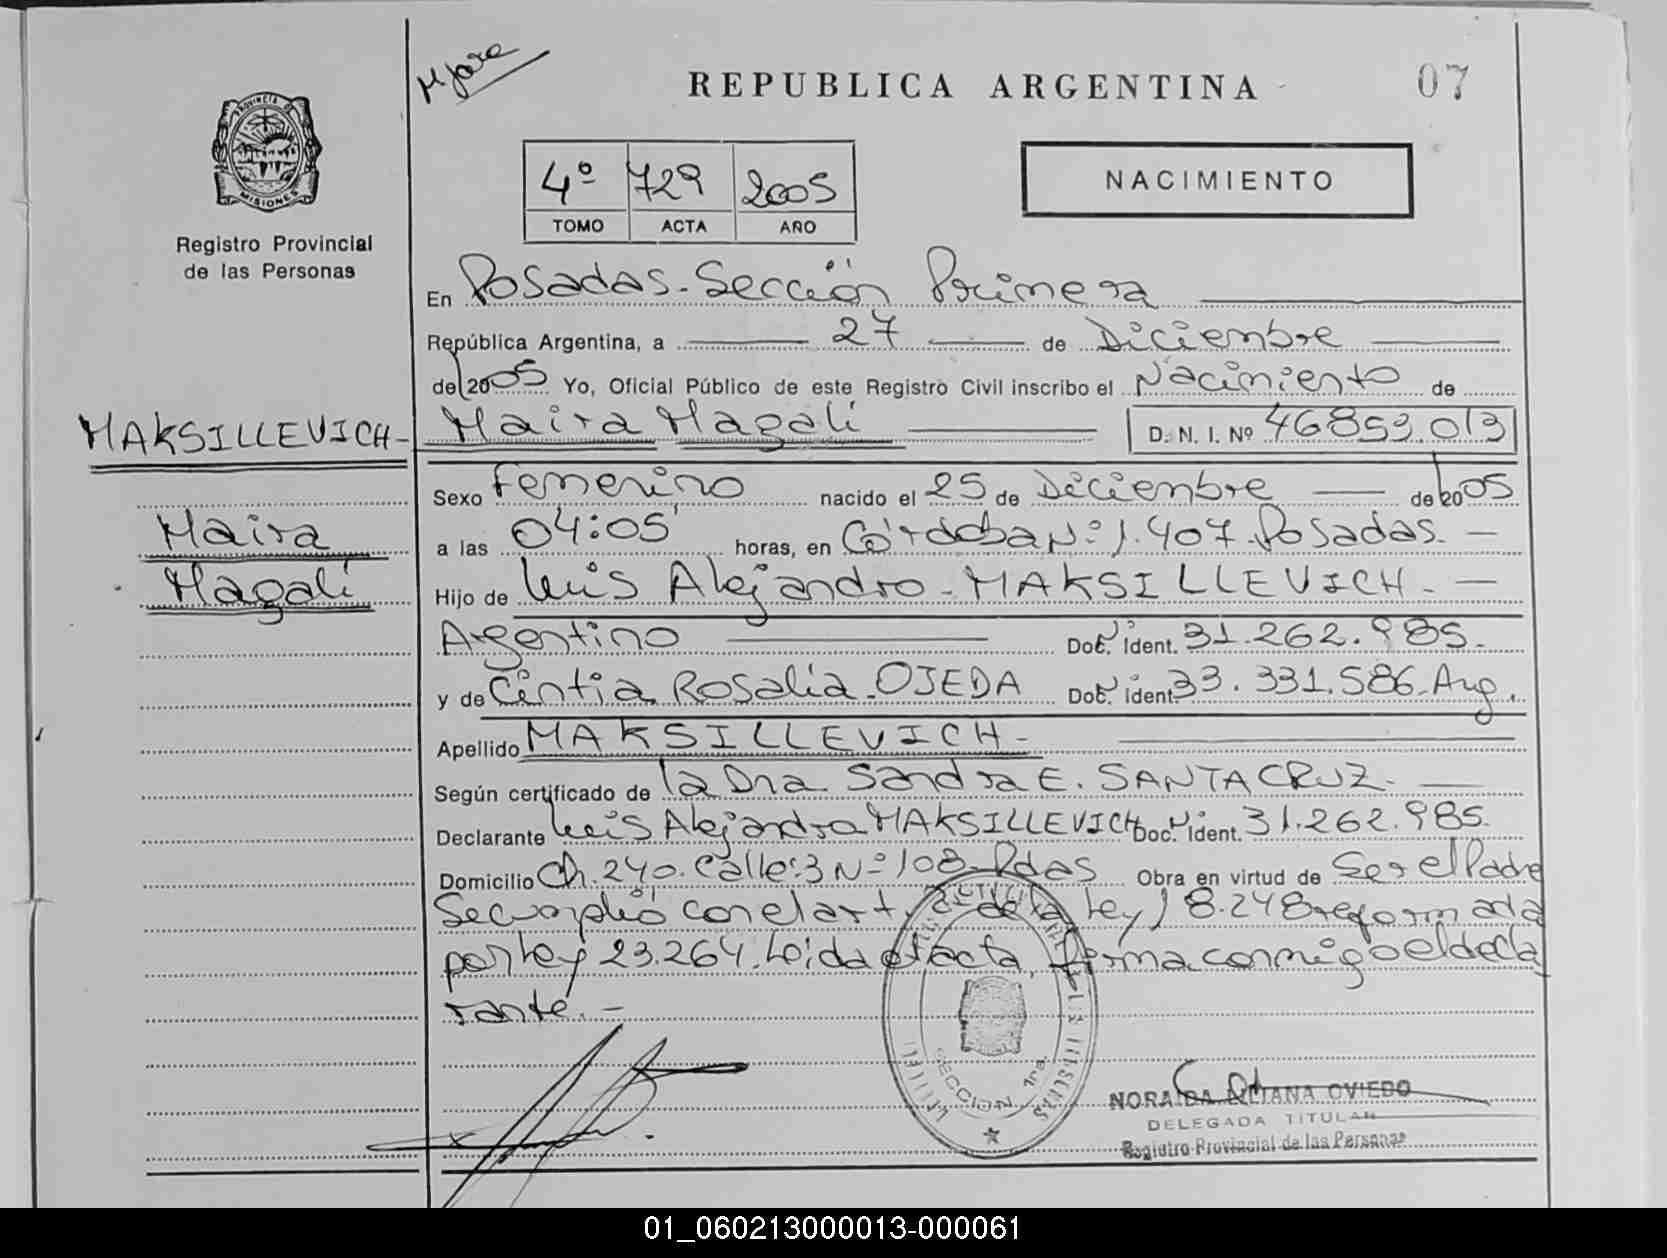 M Jara
REPUBLICA ARGENTINA
07
PROVINCIA DE
MISIONES
Registro Provincial
de las Personas
4º 729 2005
TOMO ACTA AÑO
NACIMIENTO
En Posadas-Sección Primera
República Argentina, a 27 de Diciembre
del 2005 Yo, Oficial Público de este Registro Civil inscribo el Nacimiento de
MAKSILLEVICH- Maira Magalí D. N. I. Nº 46853.013
Sexo Femenino nacido el 25 de Diciembre de 2005
Maira
a las 04:05' horas, en Córdoba Nº 1.407 Posadas.
Magalí
Hijo de Luis Alejandro-MAKSILLEVICH-
Argentino Doc. Ident. 31.262.985.
y de Cintia Rosalia OJEDA Doc. Ident. 33.331.586 Arg.
Apellido MAKSILLEVICH-
Según certificado de la Dra. Sandra E. SANTACRUZ.
Declarante Luis Alejandro MAKSILLEVICH Doc. Ident. 31.262.985.
Domicilio Ch. 240. Calle:3 Nº 108-Pdas Obra en virtud de Ser el Padre
Se cumplió con el art. 2º de la Ley 18.248 reformada
por Ley 23.264. Leida el acta, firma conmigo el decla
rante.-
SECCION 1ra.
MISIONES
NORAIDA OVIEDO
DELEGADA TITULAR
Registro Provincial de las Personas
01_060213000013-000061